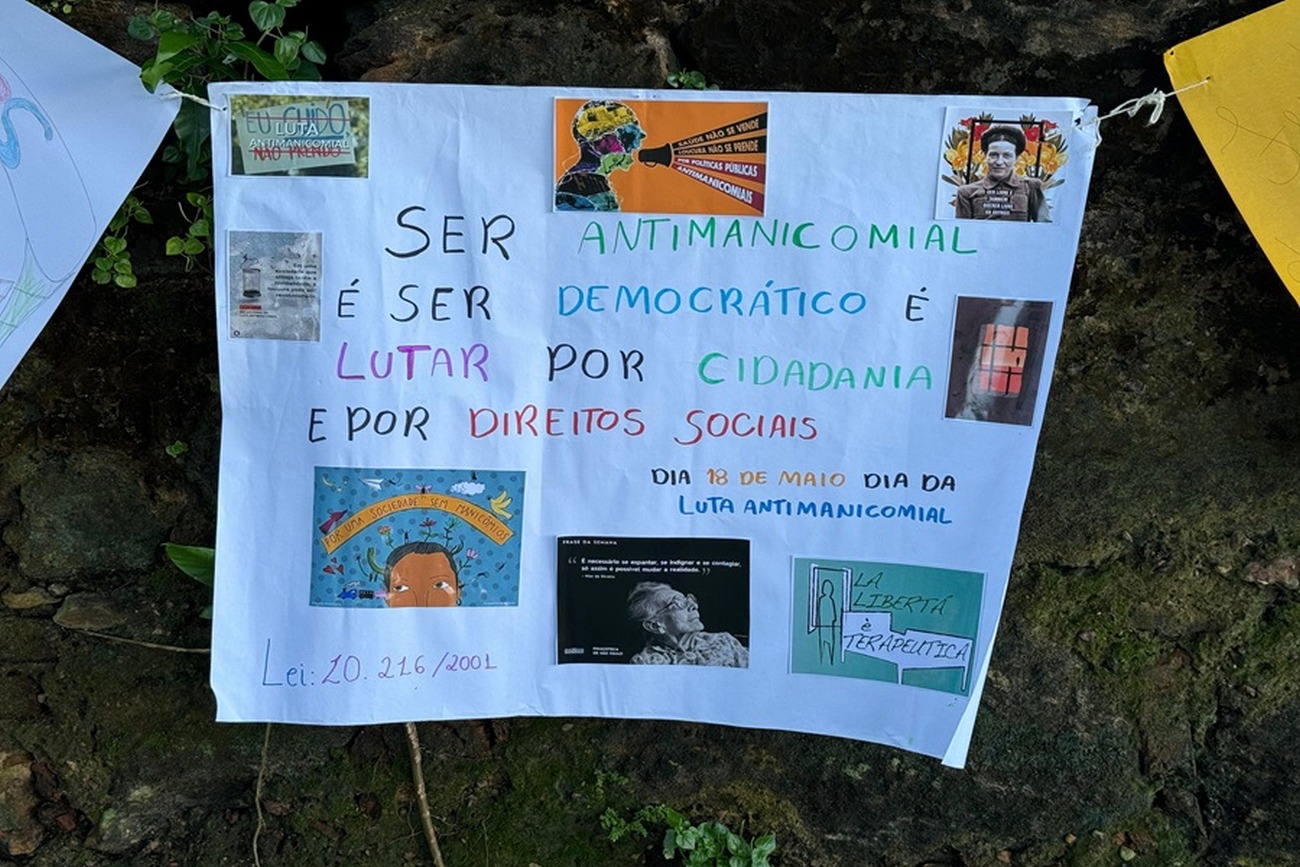 EU CUIDO
LUTA
ANTIMANICOMIAL
NÃO PRENDO
SAÚDE NÃO SE VENDE
LOUCURA NÃO SE PRENDE
POR POLÍTICAS PÚBLICAS
ANTIMANICOMIAIS
SER ANTIMANICOMIAL
É SER DEMOCRÁTICO É
LUTAR POR CIDADANIA
E POR DIREITOS SOCIAIS
DIA 18 DE MAIO DIA DA
LUTA ANTIMANICOMIAL
POR UMA SOCIEDADE SEM MANICÔMIOS
FRASE DA SEMANA
“É necessário se espantar, se indignar e se contagiar,
só assim é possível mudar a realidade.”
- Nise da Silveira
LA
LIBERTÁ
è
TERAPEUTICA
Lei: 10.216/2001